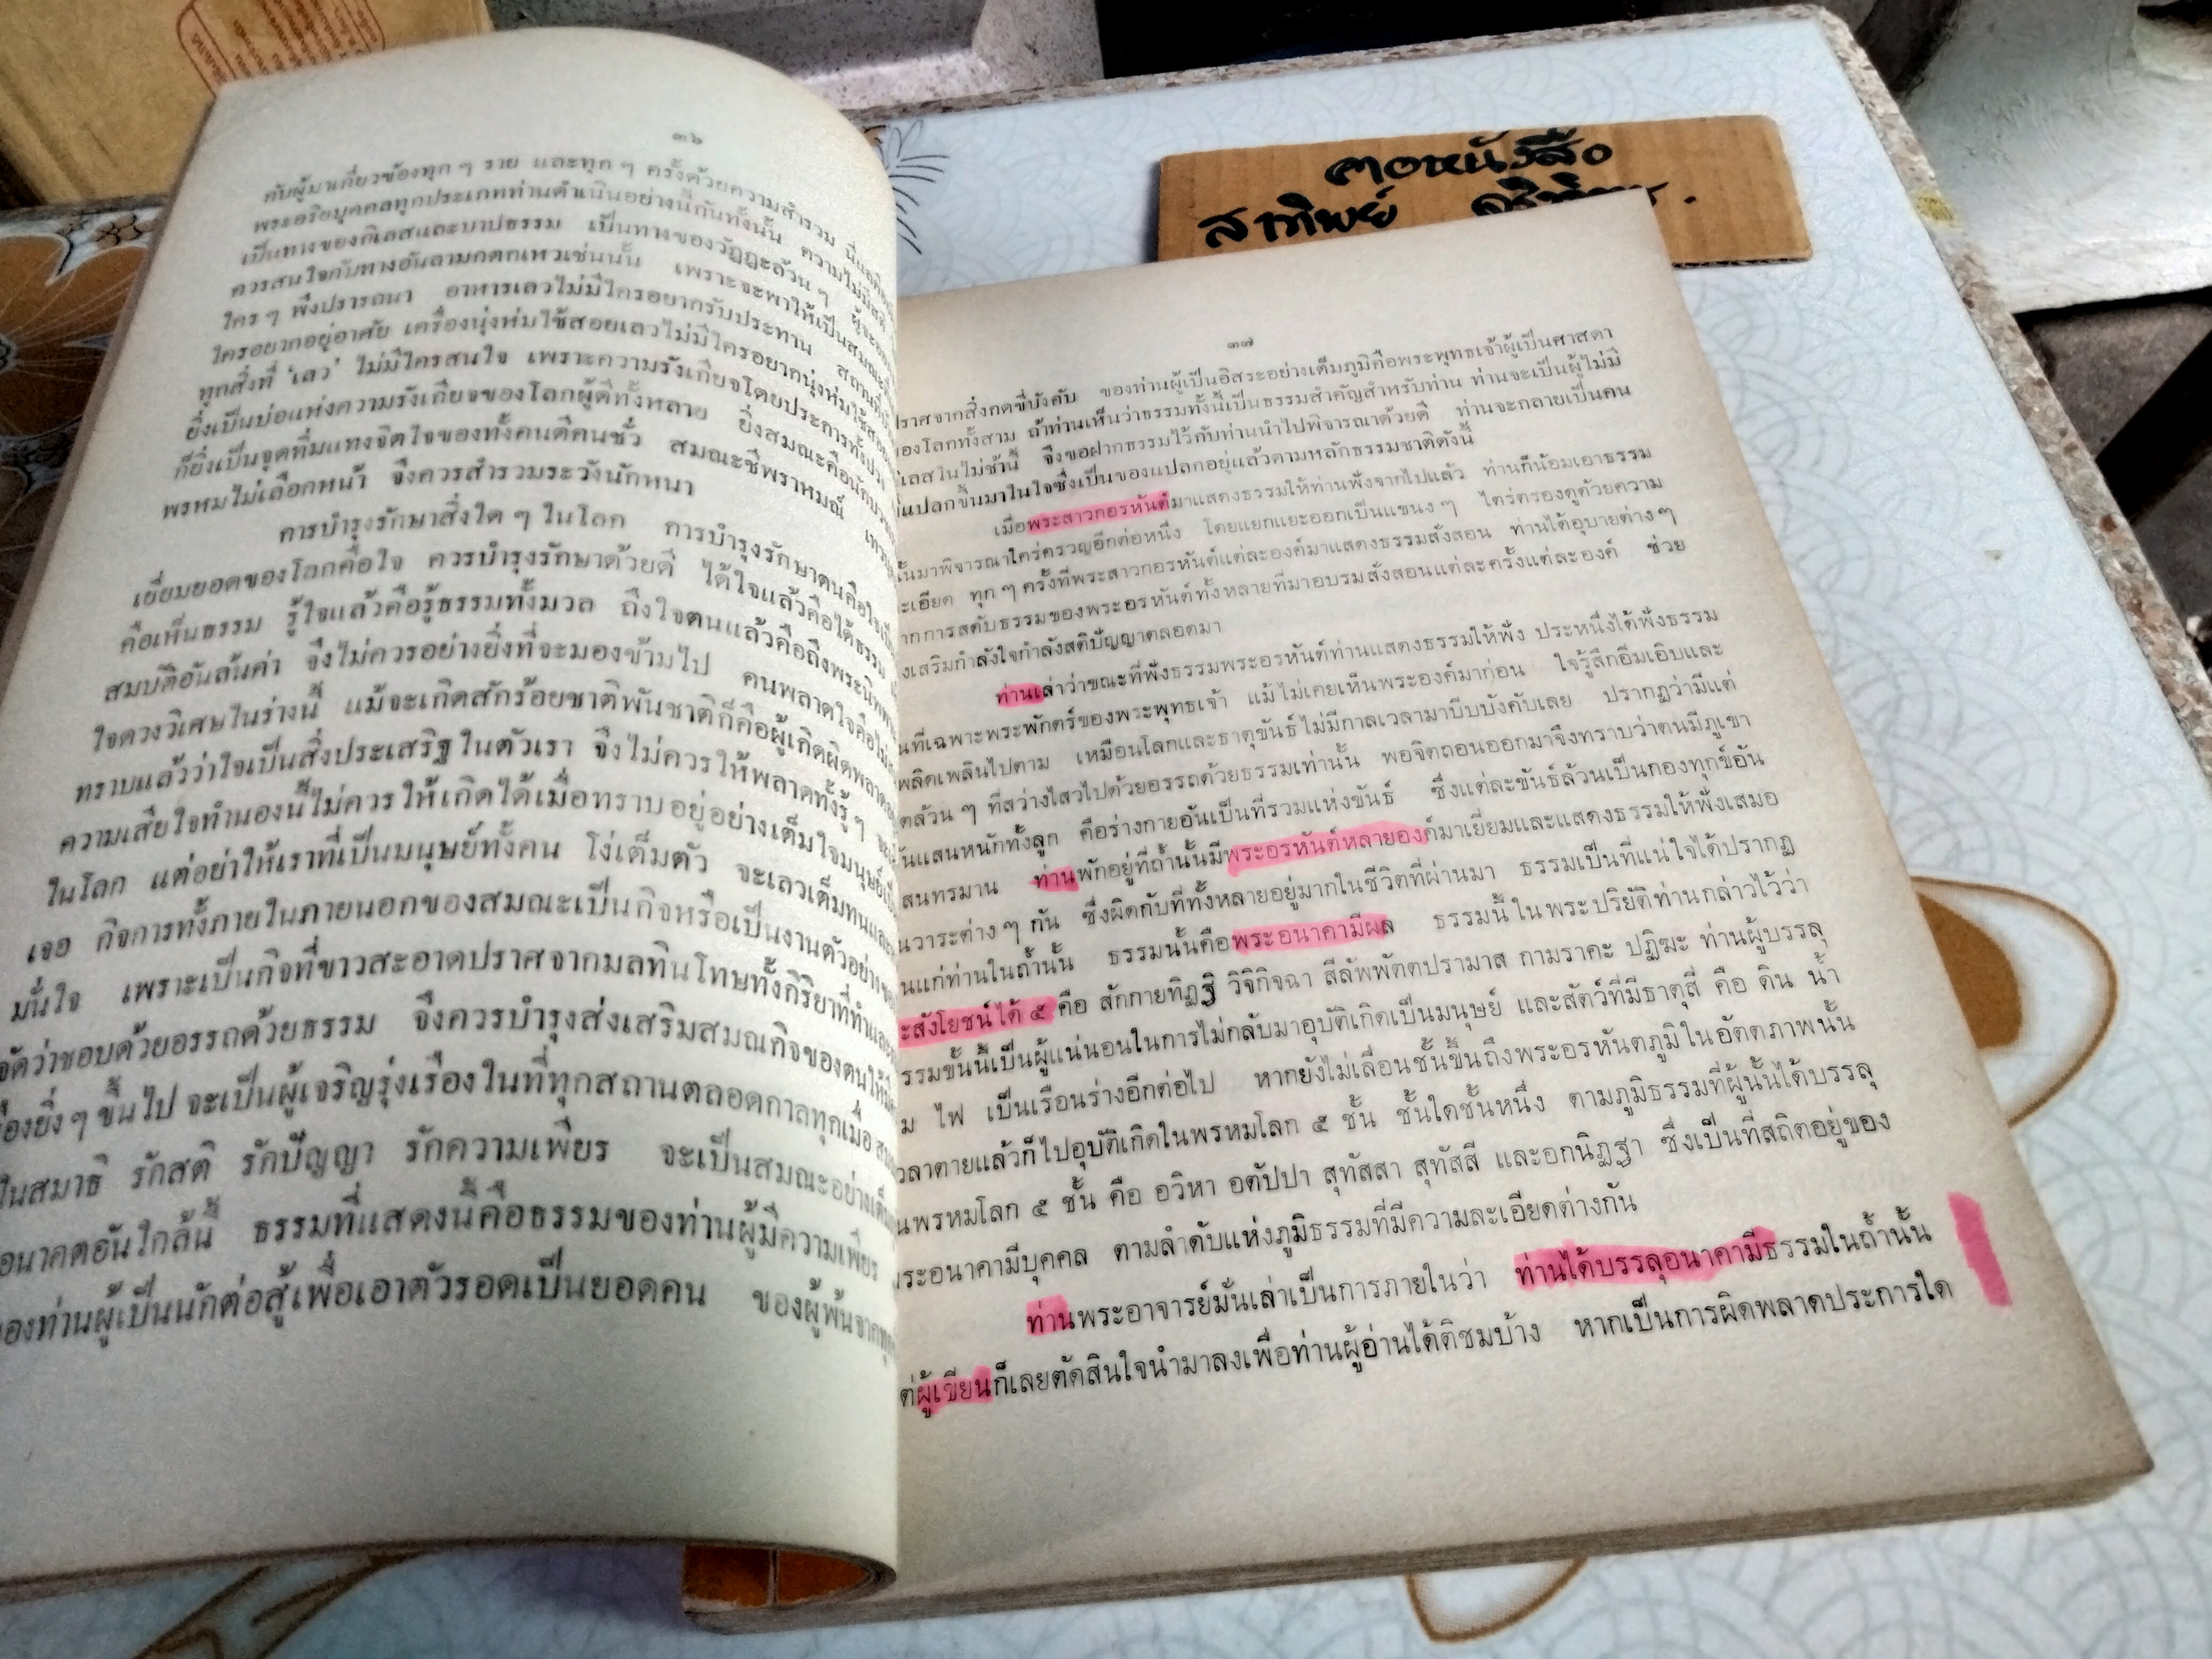 คอหนังสือ
สาทิพย์
๓๖
กับผู้มาเกี่ยวข้องทุก ๆ ราย และทุก ๆ ครั้งด้วยความสำรวม นี่แล
พระอริยบุคคลทุกประเภทท่านดำเนินอย่างนี้กันทั้งนั้น ความไม่มีสติ
เป็นทางของกิเลสและบาปธรรม เป็นทางของวัฏฏะล้วน ๆ ผู้จะ
ควรสนใจกับทางอันลามกตกเหวเช่นนั้น เพราะจะพาให้เป็นสมณะ
ใคร ๆ พึงปรารถนา อาหารเลวไม่มีใครอยากรับประทาน สถานที่
ใครอยากอยู่อาศัย เครื่องนุ่งห่มใช้สอยเลวไม่มีใครอยากนุ่งห่มใช้สอย
ทุกสิ่งที่ ‘เลว’ ไม่มีใครสนใจ เพราะความรังเกียจโดยประการทั้งปวง
ยิ่งเป็นบ่อแห่งความรังเกียจของโลกผู้ดีทั้งหลาย ยิ่งสมณะคือนักบวช
ก็ยิ่งเป็นจุดทิ่มแทงจิตใจของทั้งคนดีคนชั่ว สมณะชีพราหมณ์
พรหมไม่เลือกหน้า จึงควรสำรวมระวังนักหนา
การบำรุงรักษาสิ่งใด ๆ ในโลก การบำรุงรักษาตนคือใจ
เยี่ยมยอดของโลกคือใจ ควรบำรุงรักษาด้วยดี ได้ใจแล้วคือได้ธรรม
คือเห็นธรรม รู้ใจแล้วคือรู้ธรรมทั้งมวล ถึงใจตนแล้วคือถึงพระนิพพาน
สมบัติอันล้นค่า จึงไม่ควรอย่างยิ่งที่จะมองข้ามไป คนพลาดใจคือไม่
ใจดวงวิเศษในร่างนี้ แม้จะเกิดสักร้อยชาติพันชาติก็คือผู้เกิดผิดพลาด
ทราบแล้วว่าใจเป็นสิ่งประเสริฐในตัวเรา จึงไม่ควรให้พลาดทั้งรู้ ๆ
ความเสียใจทำนองนี้ไม่ควรให้เกิดได้เมื่อทราบอยู่อย่างเต็มใจมนุษย์
ในโลก แต่อย่าให้เราที่เป็นมนุษย์ทั้งคน โง่เต็มตัว จะเลวเต็มทน
เจอ กิจการทั้งภายในภายนอกของสมณะเป็นกิจหรือเป็นงานตัวอย่าง
มั่นใจ เพราะเป็นกิจที่ขาวสะอาดปราศจากมลทินโทษทั้งกิริยาที่ทำ
จัดว่าชอบด้วยอรรถด้วยธรรม จึงควรบำรุงส่งเสริมสมณกิจของตนให้
องยิ่ง ๆ ขึ้นไป จะเป็นผู้เจริญรุ่งเรืองในที่ทุกสถานตลอดกาลทุกเมื่อ
ในสมาธิ รักสติ รักปัญญา รักความเพียร จะเป็นสมณะอย่างเต็ม
อนาคตอันใกล้นี้ ธรรมที่แสดงนี้คือธรรมของท่านผู้มีความเพียร
ของท่านผู้เป็นนักต่อสู้เพื่อเอาตัวรอดเป็นยอดคน ของผู้พ้นจากทุกข์
๓๗
ปราศจากสิ่งกดขี่บังคับ ของท่านผู้เป็นอิสระอย่างเต็มภูมิคือพระพุทธเจ้าผู้เป็นศาสดา
ของโลกทั้งสาม ถ้าท่านเห็นว่าธรรมทั้งนี้เป็นธรรมสำคัญสำหรับท่าน ท่านจะเป็นผู้ไม่มี
เลสในไม่ช้านี้ จึงขอฝากธรรมไว้กับท่านนำไปพิจารณาด้วยดี ท่านจะกลายเป็นคน
แปลกขึ้นมาในใจซึ่งเป็นของแปลกอยู่แล้วตามหลักธรรมชาติดังนี้
เมื่อพระสาวกอรหันต์มาแสดงธรรมให้ท่านฟังจากไปแล้ว ท่านก็น้อมเอาธรรม
นั้นมาพิจารณาใคร่ครวญอีกต่อหนึ่ง โดยแยกแยะออกเป็นแขนง ๆ ไตร่ตรองดูด้วยความ
ะเอียด ทุก ๆ ครั้งที่พระสาวกอรหันต์แต่ละองค์มาแสดงธรรมสั่งสอน ท่านได้อุบายต่าง ๆ
ากการสดับธรรมของพระอรหันต์ทั้งหลายที่มาอบรมสั่งสอนแต่ละครั้งแต่ละองค์ ช่วย
งเสริมกำลังใจกำลังสติปัญญาตลอดมา
ท่านเล่าว่าขณะที่ฟังธรรมพระอรหันต์ท่านแสดงธรรมให้ฟัง ประหนึ่งได้ฟังธรรม
นที่เฉพาะพระพักตร์ของพระพุทธเจ้า แม้ไม่เคยเห็นพระองค์มาก่อน ใจรู้สึกอิ่มเอิบและ
พลิดเพลินไปตาม เหมือนโลกและธาตุขันธ์ไม่มีกาลเวลามาบีบบังคับเลย ปรากฏว่ามีแต่
ตล้วน ๆ ที่สว่างไสวไปด้วยอรรถด้วยธรรมเท่านั้น พอจิตถอนออกมาจึงทราบว่าตนมีภูเขา
ันแสนหนักทั้งลูก คือร่างกายอันเป็นที่รวมแห่งขันธ์ ซึ่งแต่ละขันธ์ล้วนเป็นกองทุกข์อัน
สนทรมาน ท่านพักอยู่ที่ถ้ำนั้นมีพระอรหันต์หลายองค์มาเยี่ยมและแสดงธรรมให้ฟังเสมอ
นวาระต่าง ๆ กัน ซึ่งผิดกับที่ทั้งหลายอยู่มากในชีวิตที่ผ่านมา ธรรมเป็นที่แน่ใจได้ปรากฏ
นแก่ท่านในถ้ำนั้น ธรรมนั้นคือพระอนาคามีผล ธรรมนี้ในพระปริยัติท่านกล่าวไว้ว่า
ะสังโยชน์ได้ ๕ คือ สักกายทิฏฐิ วิจิกิจฉา สีลัพพัตตปรามาส กามราคะ ปฏิฆะ ท่านผู้บรรลุ
รรมขั้นนี้เป็นผู้แน่นอนในการไม่กลับมาอุบัติเกิดเป็นมนุษย์ และสัตว์ที่มีธาตุสี่ คือ ดิน น้ำ
ม ไฟ เป็นเรือนร่างอีกต่อไป หากยังไม่เลื่อนชั้นขึ้นถึงพระอรหันตภูมิในอัตตภาพนั้น
วลาตายแล้วก็ไปอุบัติเกิดในพรหมโลก ๕ ชั้น ชั้นใดชั้นหนึ่ง ตามภูมิธรรมที่ผู้นั้นได้บรรลุ
นพรหมโลก ๕ ชั้น คือ อวิหา อตัปปา สุทัสสา สุทัสสี และอกนิฏฐา ซึ่งเป็นที่สถิตอยู่ของ
พระอนาคามีบุคคล ตามลำดับแห่งภูมิธรรมที่มีความละเอียดต่างกัน
ท่านพระอาจารย์มั่นเล่าเป็นการภายในว่า ท่านได้บรรลุอนาคามีธรรมในถ้ำนั้น
ต่ผู้เขียนก็เลยตัดสินใจนำมาลงเพื่อท่านผู้อ่านได้ติชมบ้าง หากเป็นการผิดพลาดประการใด